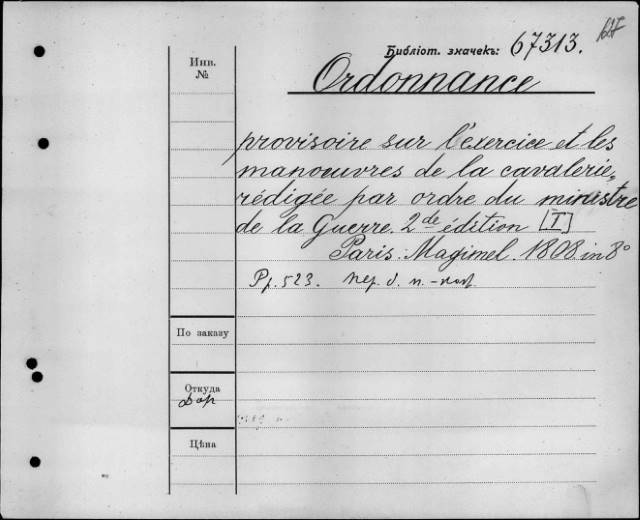 Библіот. значекъ: 67313.
Инв.
№
Ordonnance
provisoire sur l'exercice et les
manoeuvres de la cavalerie,
rédigée par ordre du ministre
de la Guerre. 2de édition [I]
Paris. Magimel. 1808. in 8°
Pp. 523.
По заказу
Откуда
Дар
Цѣна